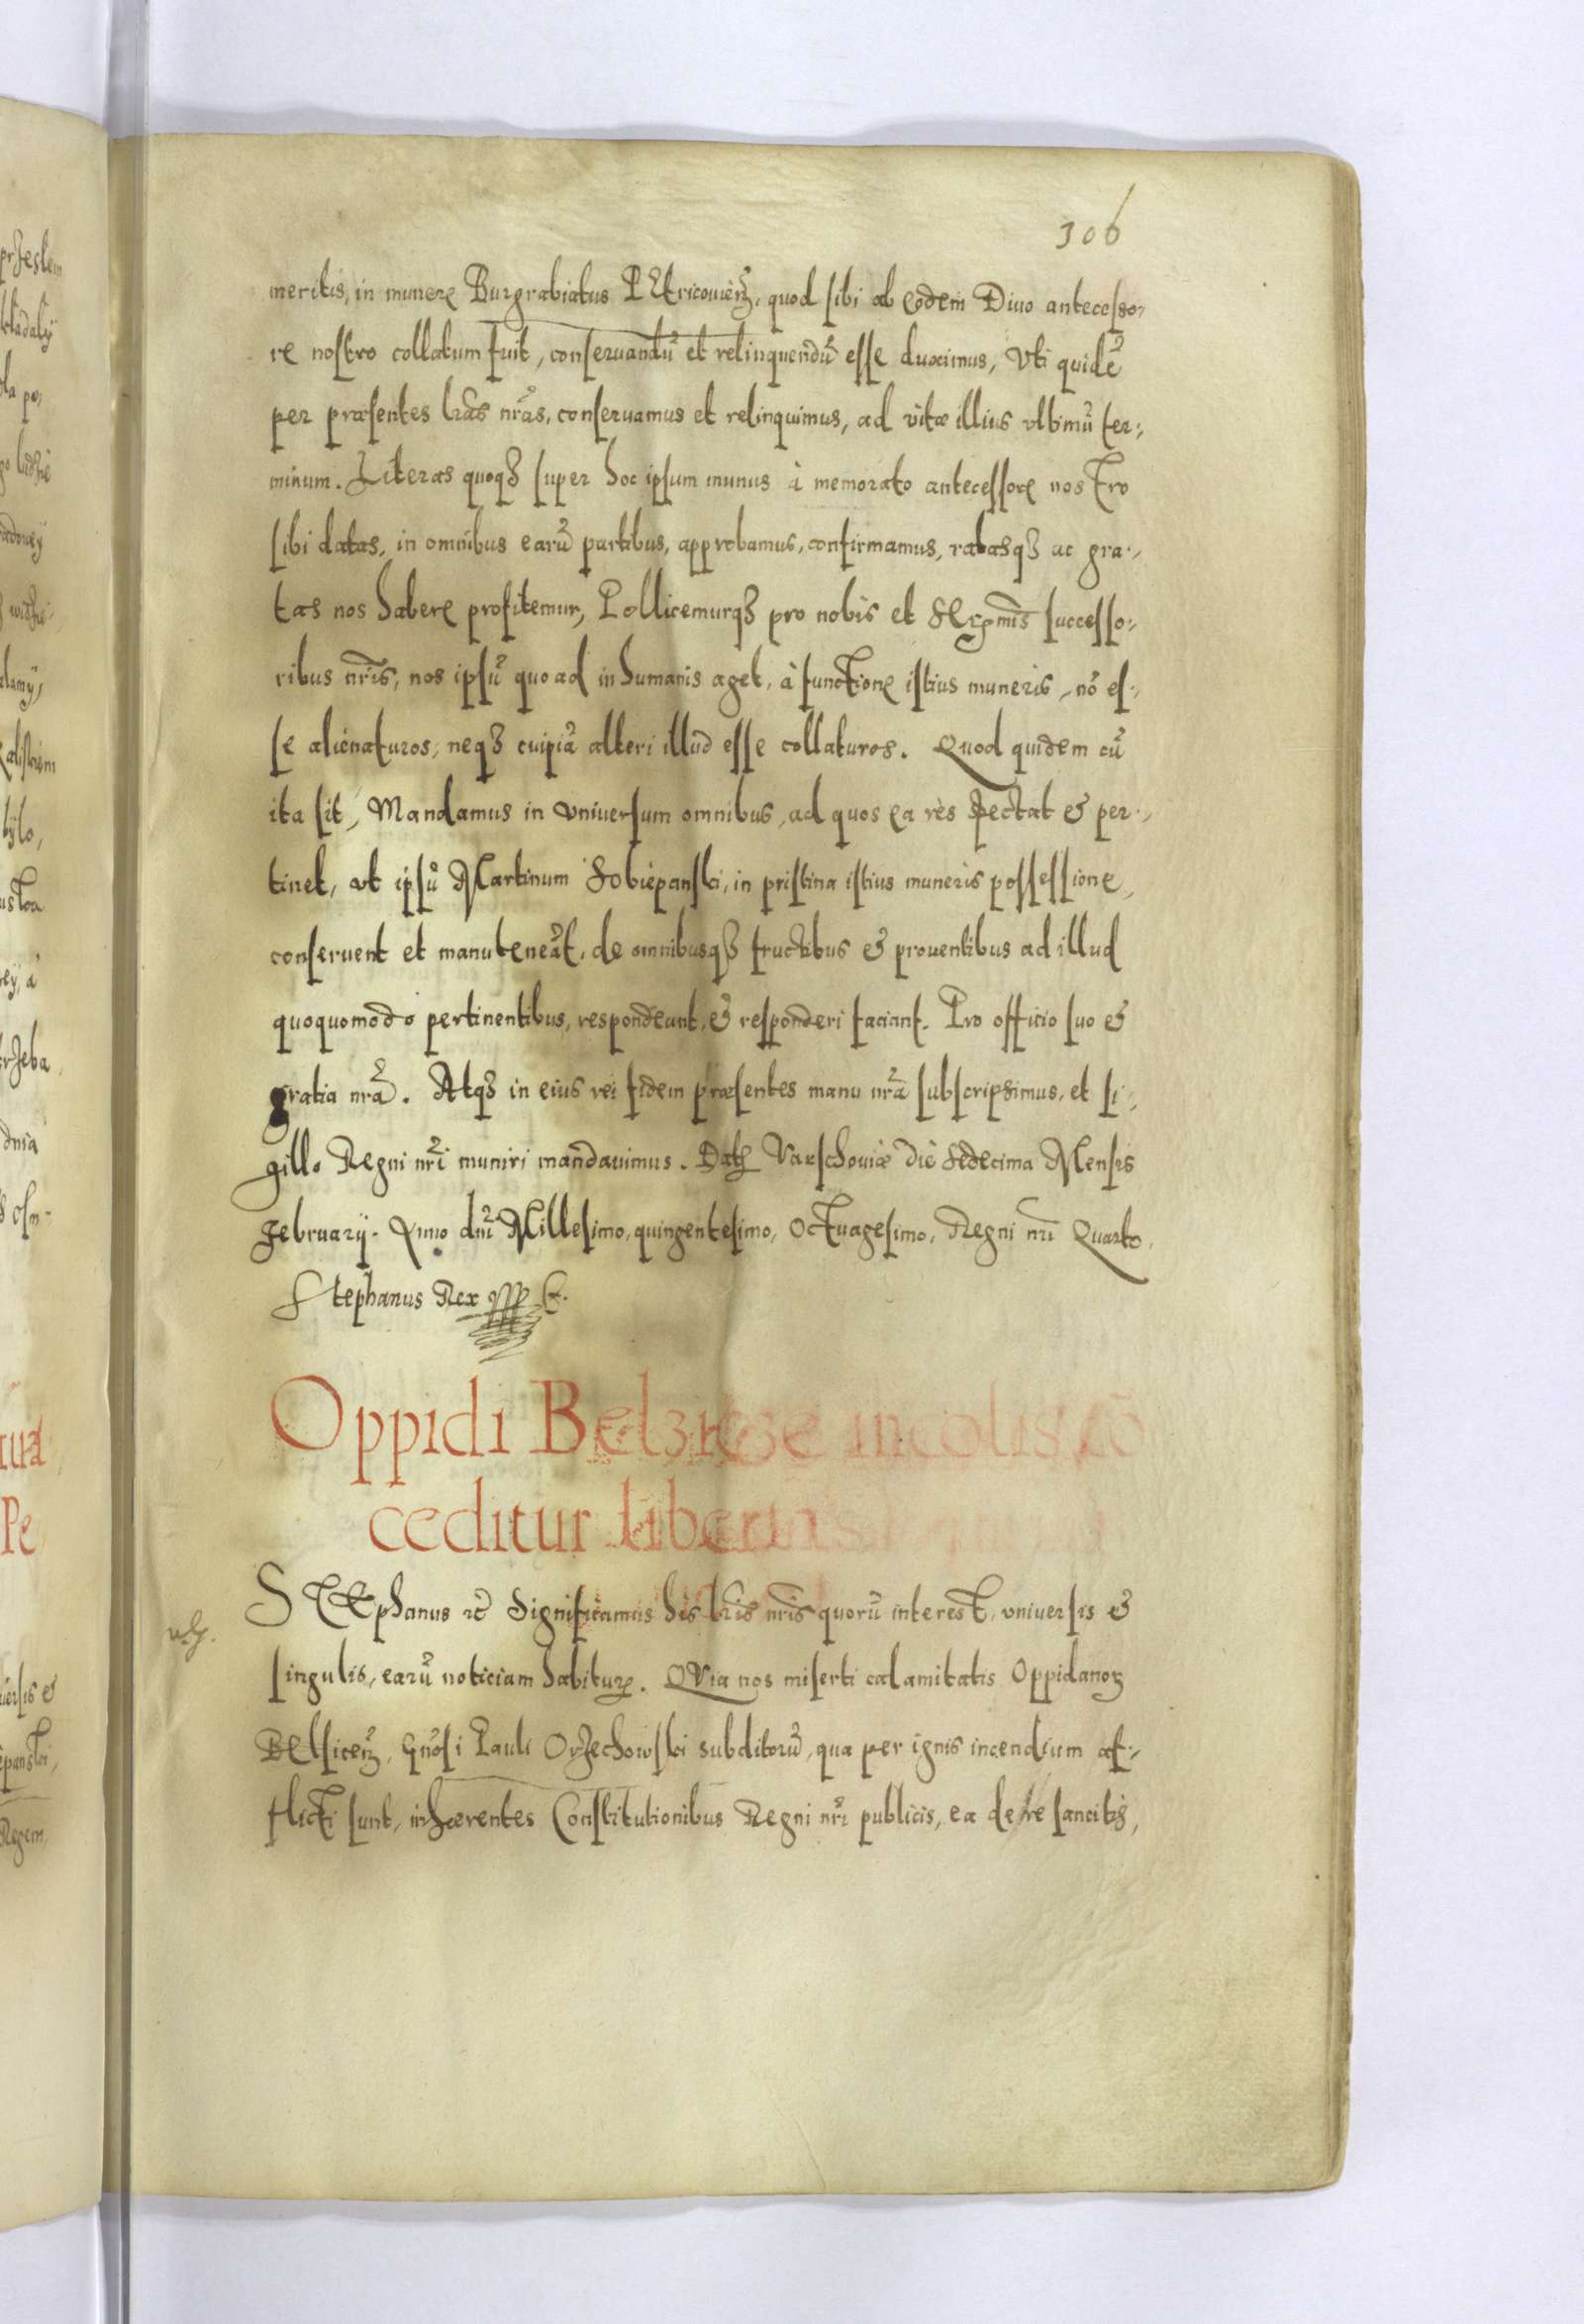 306
meritis, in munere Burgrabiatus PEtricouieñ, quod sibi ab Eodem Diuo antecesso,
re nostro collatum fuit, conseruandũ et relinquendũ esse duximus, Vti quidẽ
per præsentes lr̃as nr̃as, conseruamus et relinquimus, ad vitæ illius vltimũ ter,,
minum. Literas quoqȝ super hoc ipsum munus à memorato antecessore nostro
sibi datas, in omnibus earũ partibus, approbamus, confirmamus, ratasqȝ ac gra,,
tas nos habere profitemur, Pollicemurqȝ pro nobis et SErenmis̃ successo,,
ribus nr̃is, nos ipsũ quo ad in humanis aget, à functione istius muneris, nõ es,,
se alienaturos, neqȝ cuipiã alteri illud esse collaturos. Quod quidem cũ
ita sit, Mandamus in vniuersum omnibus, ad quos ea res spectat & per,,
tinet, vt ipsũ Martinum Sobiepanski, in pristina istius muneris possessione,
conseruent et manuteneãt, de omnibusqȝ fructibus & prouentibus ad illud
quoquomodo pertinentibus, respondeant, & responderi faciant. Pro officio suo &
gratia nr̃a. Atqȝ in eius rei fidem præsentes manu nr̃a subscripsimus, et si,,
gillo Regni nr̃i muniri mandauimus. Datꝭ Varschouiæ die Sedecima Mensis
February. Anno dnĩ Millesimo, quingentesimo, Octuagesimo, Regni nr̃i Quarto.
Stephanus Rex
Oppidi Belzicze incolis cõ
ceditur libertas
STEphanus etc̃ Significamus his lr̃is nr̃is quorũ interest, vniuersis &
singulis, earũ noticiam habiturꝭ. QVia nos miserti calamitatis Oppidanoꝝ
BElsiceñ, Gnõsi Pauli Orzechowski subditorũ, qua per ignis incendium af,,
flicti sunt, inhærentes Constitutionibus Regni nr̃i publicis, ea de re sancitis,